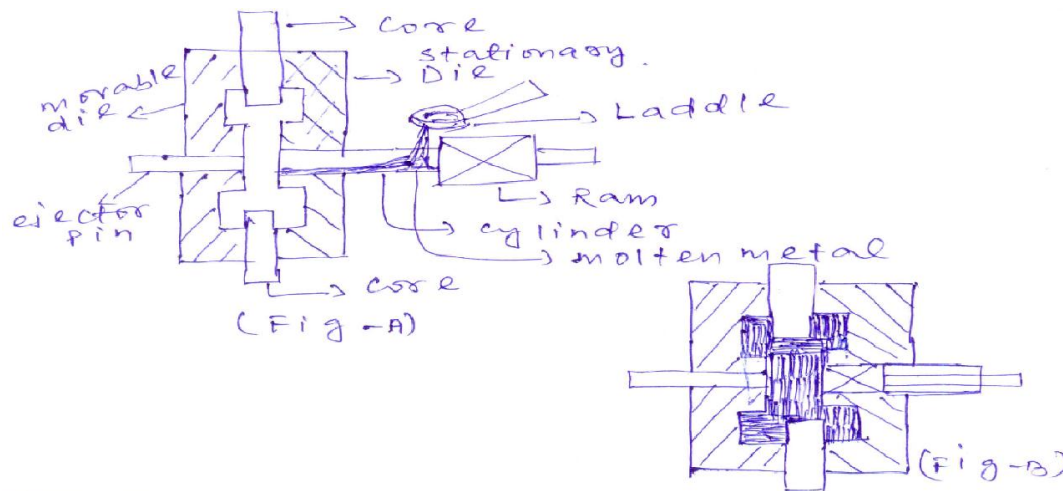 core
stationary
Die
movable
die
Laddle
ejector
pin
Ram
cylinder
molten metal
core
(Fig-A)
(Fig-B)